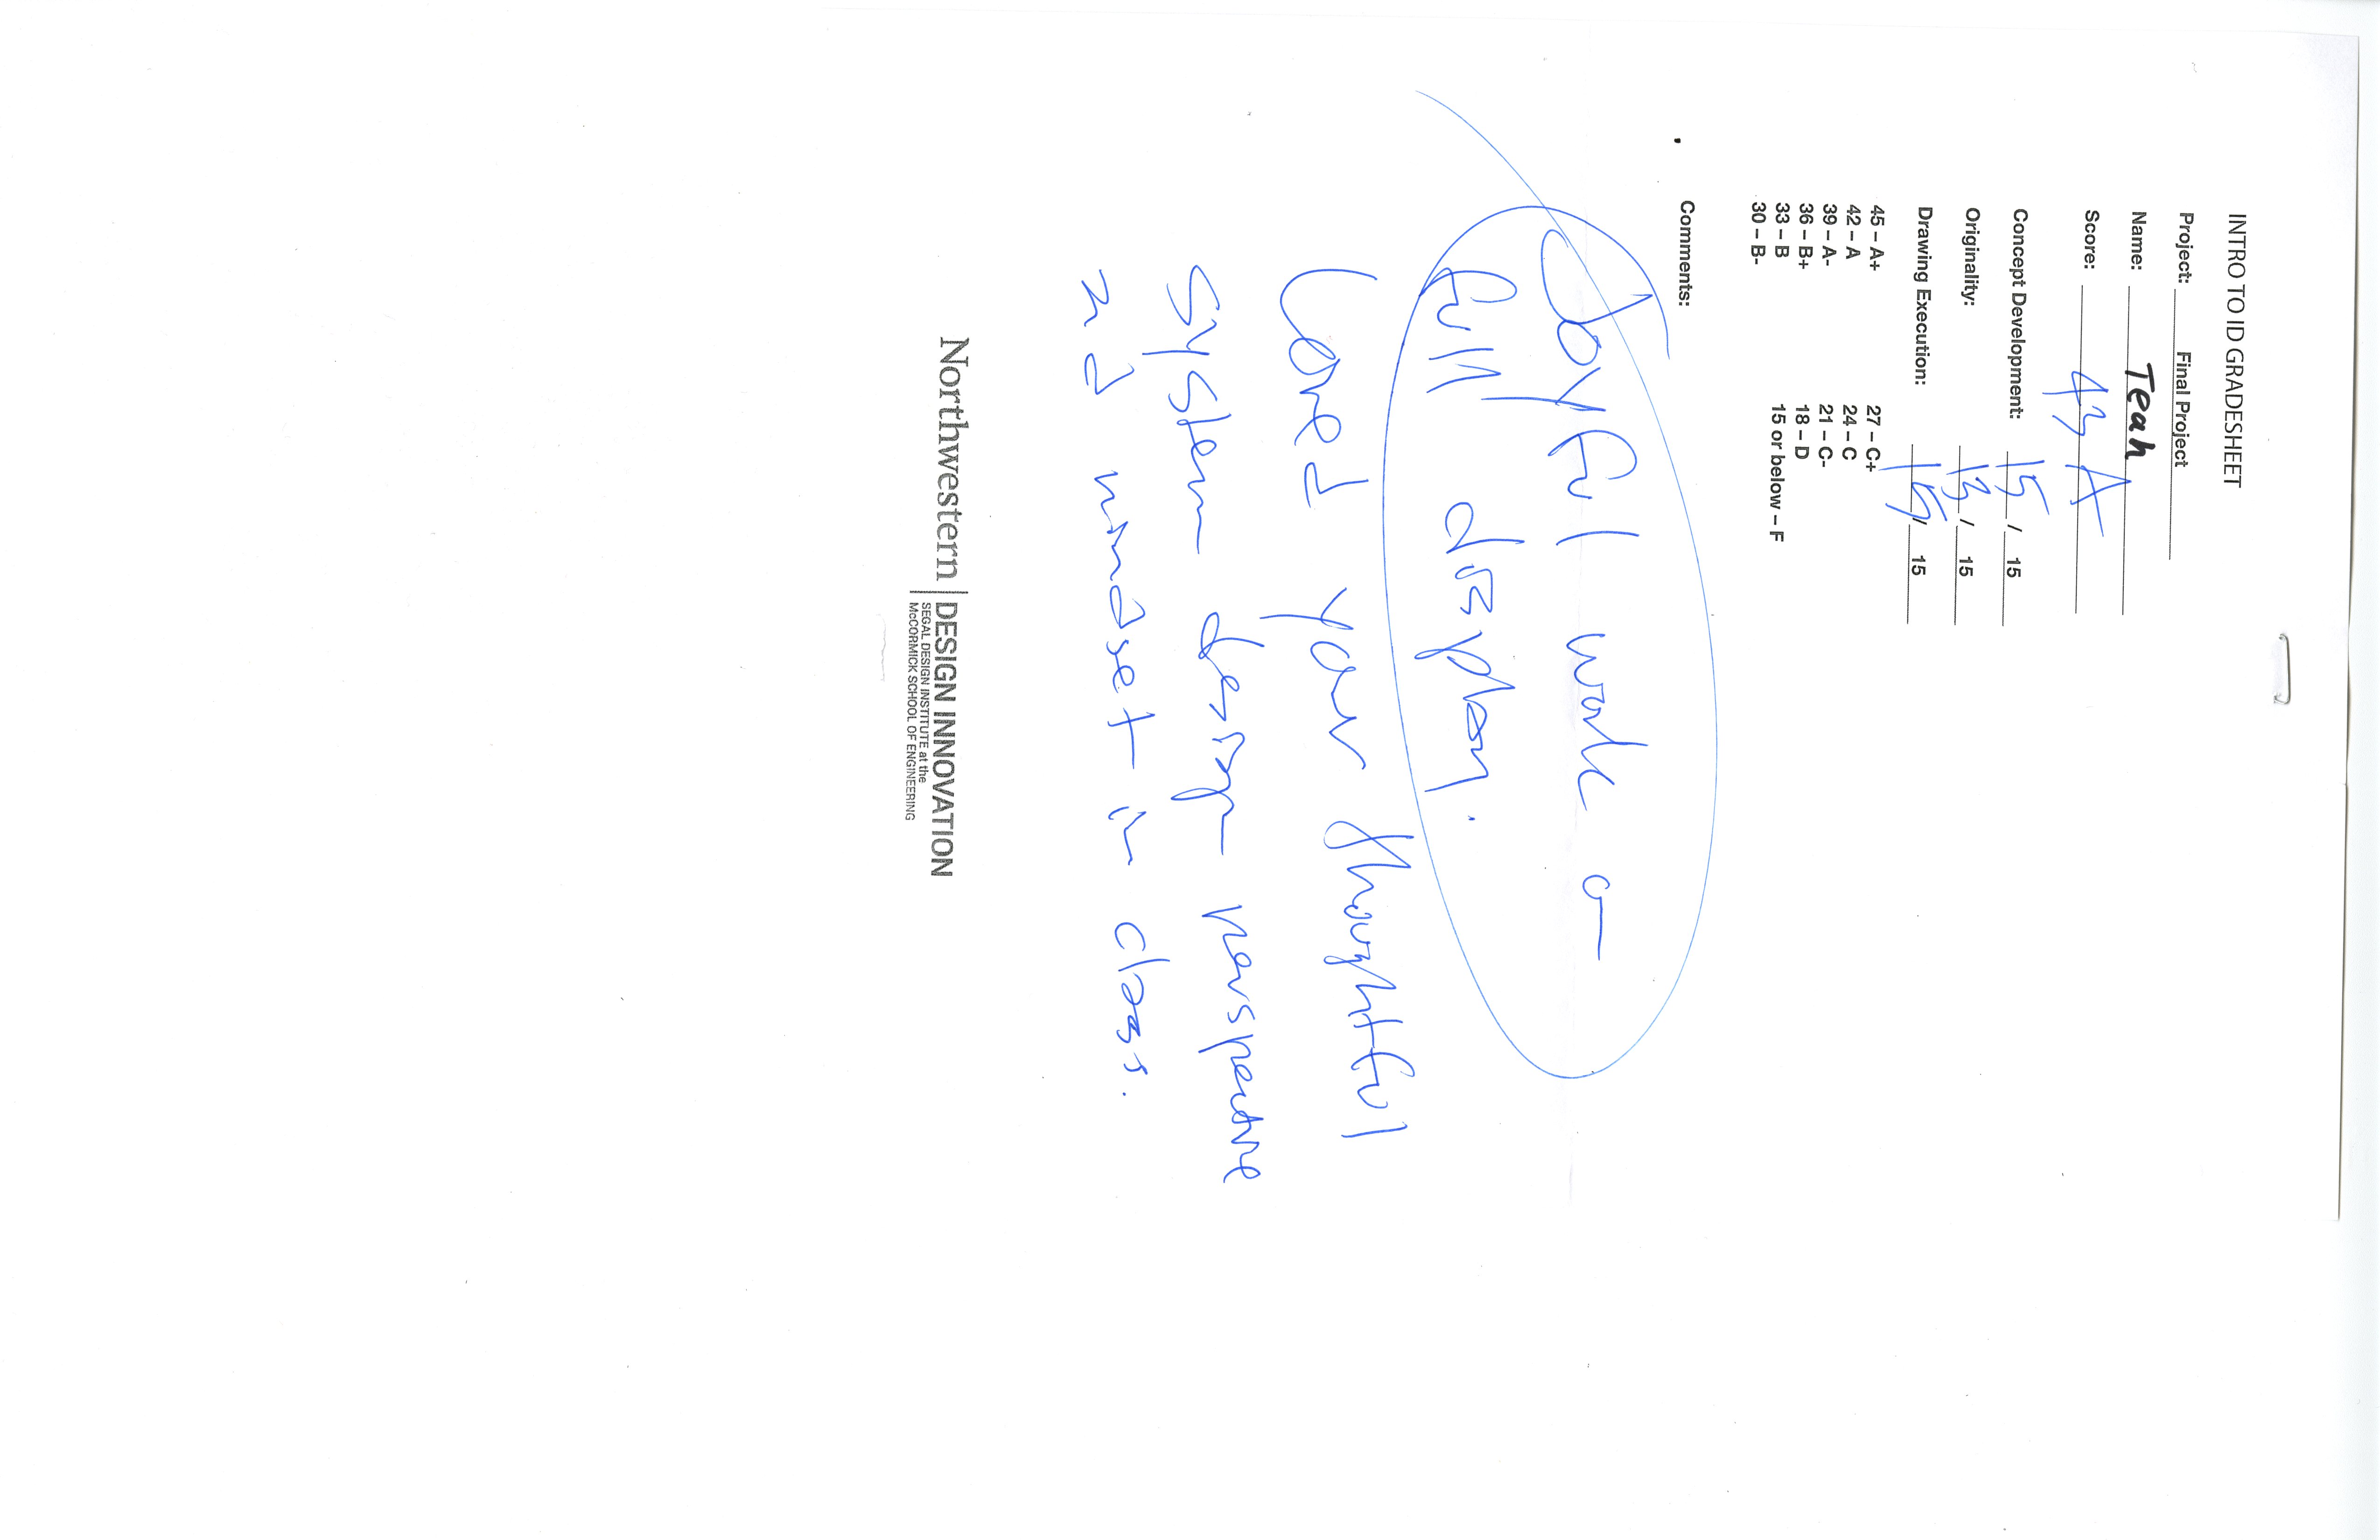 INTRO TO ID GRADESHEET
Project: Final Project
Name: Teah
Score: 43 A
Concept Development: 15 / 15
Originality: 13 / 15
Drawing Execution: 15 / 15
45 – A+ 27 – C+
42 – A 24 – C
39 – A- 21 – C-
36 – B+ 18 – D
33 – B 15 or below – F
30 – B-
Comments:
Joyful work on
full display.
Loved your thoughtful
system design perspective
and mindset in class.
Northwestern | DESIGN INNOVATION
SEGAL DESIGN INSTITUTE at the
McCORMICK SCHOOL OF ENGINEERING